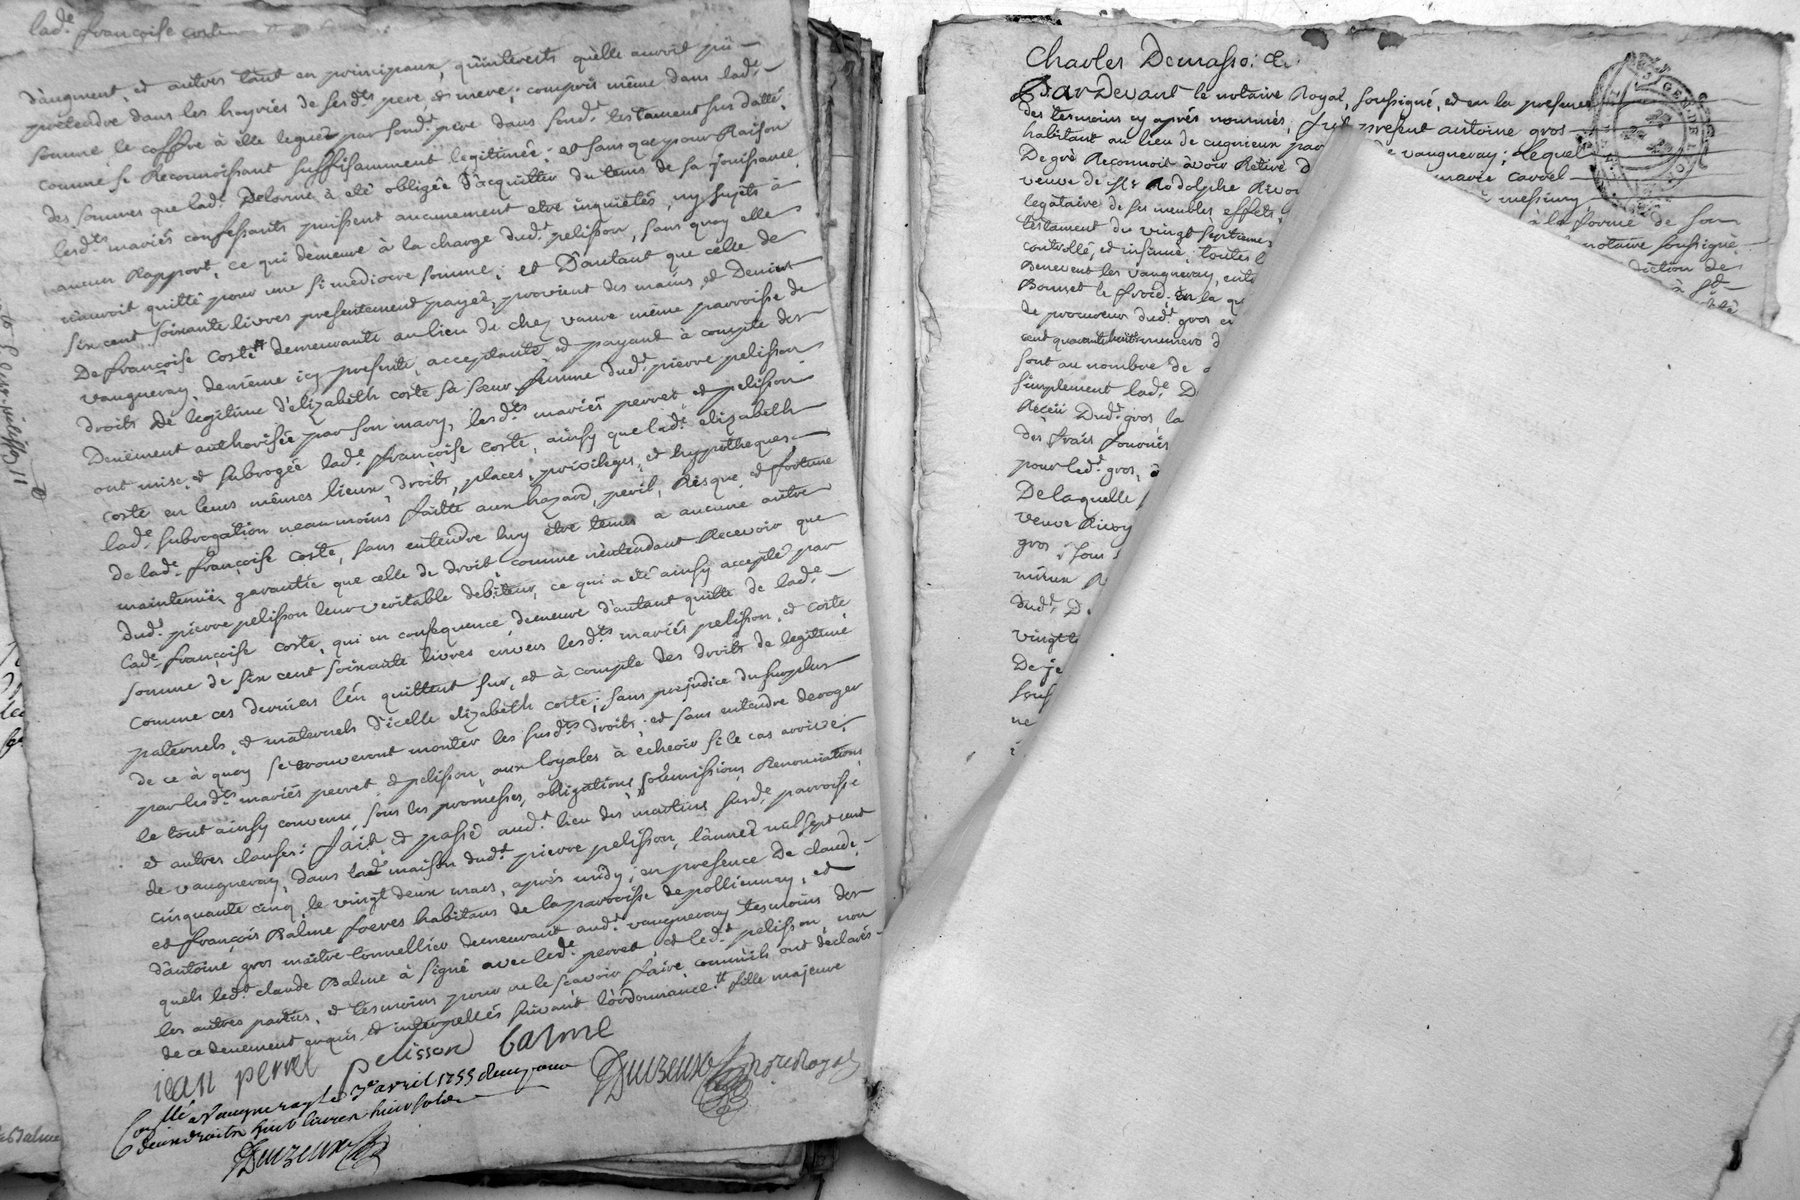 lad.e françoise coste
d'augment, et autres tant en principaux, qu'interests qu'elle auroit pû
pretendre dans les hoyries de sesd.ts pere, et mere; compris même dans lad.e
somme le coffre à elle legué par sond.t pere dans sond.t testament sus datté,
comme se Reconnoissant suffisamment legitimée; et sans que pour Raison
des sommes que lad.e Delorme à eté obligée d'acquitter du tems de sa jouissance
lesd.ts mariés confessants puissent aucunement etre inquietés, ny sujets à
aucun Rapport, ce qui demeure à la charge dud.t pelisson, sans quoy elle
n'auroit quitté pour une si mediocre somme; et D'autant que celle de
six cent soixante livres presentement payée, provient des mains, et Deniers
De françoise Coste # demeurante au lieu de chez vauve même parroisse de
vaugneray, demême icy presente, acceptante et payant à compte des
droits De legitime d'elizabeth coste sa sœur, femme dud.t pierre pelisson
Deüement authorisée par son mary, lesd.ts mariés perret, et pelisson
ont mise, et subrogée lad.e françoise coste, ainsy que lad.e elizabeth
coste en leurs mêmes lieux, droits, places, privileges, et hypotheques
lad.e subrogation neanmoins faitte aux hazard, peril, Risque, et fortune
de lad.e françoise coste, sans entendre luy être tenus a aucune autre
maintenüe, garantie que celle de droit comme n'entendant Recevoir que
dud.t pierre pelisson leur veritable debiteur, ce qui a eté ainsy accepté par
lad.e françoise coste, qui en consequence demeure d'autant quitte de lad.e
somme de six cent soixante livres envers lesd.ts mariés pelisson, et coste
comme ces derniers l'en quittent sur, et à compte des droits de legitime
paternels, et maternels d'icelle elizabeth coste; sans prejudice du surplus
de ce à quoy se trouveront monter les susd.ts droits; et sans entendre deroger
par lesd.ts mariés perret et pelisson, aux loyales à echeoir si le cas arrive,
le tout ainsy convenu, sous les promesses, obligations, soumissions, Renonciations
et autres clauses: fait et passé aud.t lieu des martins susd.e parroisse
de vaugneray, dans lad.e maison dud.t pierre pelisson, l'année mil sept cent
cinquante cinq, le vingt deux mars, après midy; en presence De claude,
et françois Balme freres habitans de la parroisse de pollionnay, et
d'antoine gros maitre tonnellier demeurant aud.t vaugneray tesmoins des
quels led.t claude Balme à signé avec led.t perret, et led.t pelisson, non
les autres parties, et tesmoins pour ne le scavoir faire comm'ils ont declarés
de ce deüement enquis, et interpellés suivant l'ordonnance. # fille majeure
jean perret pelisson balme
Duizeux No.re Royal
Con.llé a Vaugneray le 3e avril 1755
deux droits huit livres huit sols
Duizeux
Charles Demasso: &
Par Devant le notaire Royal, soussigné, et en la presence
des tesmoins cy après nommés, fut present antoine gros
habitant au lieu de cugnieux par
de vaugneray; Lequel
De gré Reconnoit avoir Retiré D
marie carrel
veuve de s.r Rodolphe Rivoy
messimy
legataire de ses meubles effets,
à la forme de son
testament du vingt septieme
notaire soussigné
controllé, et insinué; toutes l
diction de
Benevent les vaugneray, ent
à s.t
Bonnet le froid; en la qu
de procureur dud.t gros en
cent quarante huit numero d
sont au nombre de
simplement lad.e D
Reçeü Dud.t gros, la
des frais fournis
pour led.t gros,
De laquelle
veuve Rivoy
gros; sous
mieux
dud.t D
vingt
De je
ne